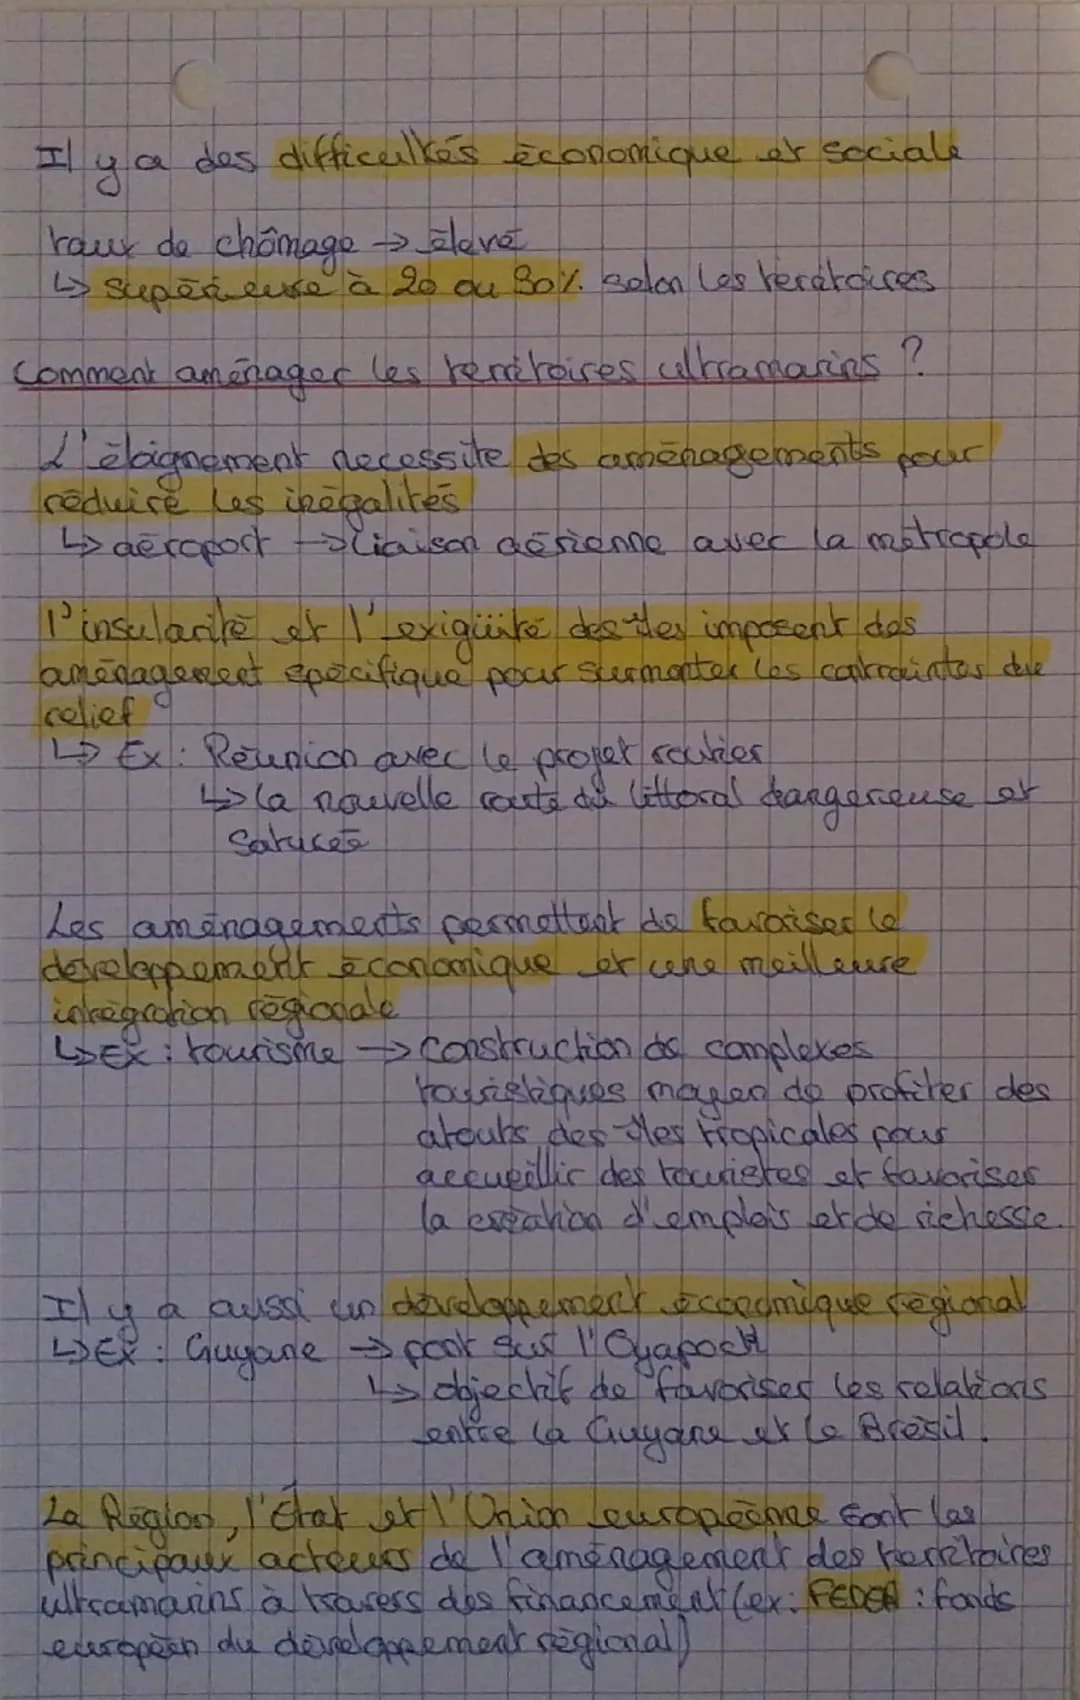 Il y a des difficultés économique et sociale
taux de chômage → élevé
↳ supérieure à 20 ou 30% selon les territoires
Comment aménager les territoires ultramarins ?
L'éloignement necessite des aménagements pour
réduire les inégalités
↳ aéroport → liaison aérienne avec la métropole
l'insularité et l'exigüité des îles imposent des
aménagement spécifique pour surmonter les contraintes du
relief
↳ Ex : Réunion avec le projet routier
↳ la nouvelle route du littoral dangereuse et
saturée
Les aménagements permettent de favoriser le
développement économique et une meilleure
intégration régionale
↳ Ex : tourisme → construction de complexes
touristiques moyen de profiter des
atouts des îles tropicales pour
accueillir des touristes et favoriser
la création d'emplois et de richesse.
Il y a aussi un développement économique régional
↳ Ex : Guyane → pont sur l'Oyapock
↳ objectif de favoriser les relations
entre la Guyane et le Brésil.
La Région, l'État et l'Union européenne sont les
principaux acteurs de l'aménagement des territoires
ultramarins à travers des financement (ex : FEDER : fonds
européen du développement régional)